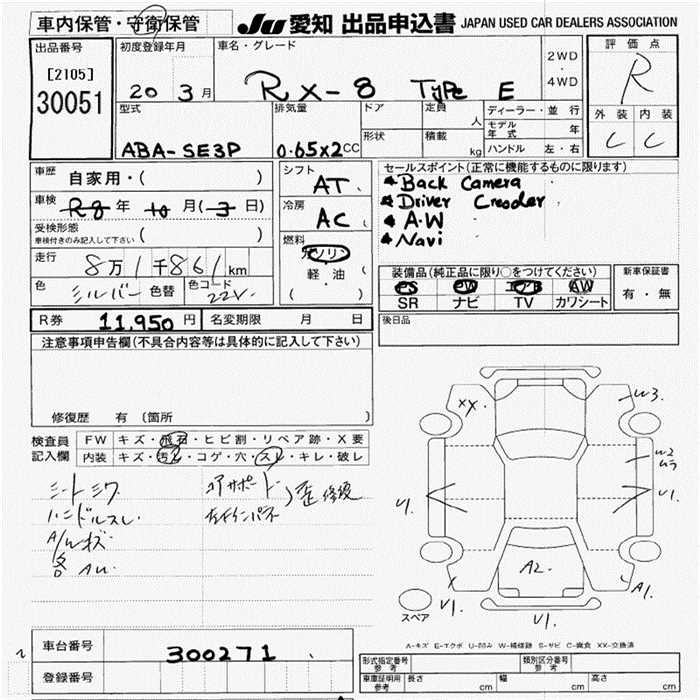 車内保管・守衛保管
JU 愛知 出品申込書 JAPAN USED CAR DEALERS ASSOCIATION
出品番号
[2105]
30051
初度登録年月
20 3月
車名・グレード
RX-8 TYPE E
2WD
・
4WD
評価点
R
外装 内装
C C
型式
ABA-SE3P
排気量
0.65x2CC
ドア
形状
定員
人
積載
kg
ディーラー・並行
モデル年式 年
ハンドル 左・右
車歴 自家用・( )
車検 R8年 10月(3日)
受検形態
車検付きのみ記入して下さい ( )
走行 8万1千861km
色 シルバー 色替 色コード 22V.
シフト AT
冷房 AC
燃料
ガソリン
軽・油
( ・ )
セールスポイント(正常に機能するものに限ります)
Back Camera
Driver
A・W
Navi
装備品(純正品に限り○をつけてください)
PS PW エアB AW
SR ナビ TV カワシート
新車保証書
有・無
後日品
R券 11,950円 名変期限 月 日
注意事項申告欄(不具合内容等は具体的に記入して下さい)
修復歴 有 (箇所
検査員
記入欄
FW キズ・飛石・ヒビ割・リペア跡・X要
内装 キズ・汚レ・コゲ・穴・スレ・キレ・破レ
シートシワ
ハンドルスレ
A/Wキズ
各AU
コアサポート
左インパネ
歪 修復
XX.
W3.
W2
ムラ
U1.
U1.
A2.
U1.
U1.
A1.
スペア
A-キズ E-エクボ U-凹み W-補修跡 S-サビ C-腐食 XX-交換済
車台番号 300271
登録番号
形式指定番号
参考
類別区分番号
参考
車庫証明用
参考
長さ cm 幅 cm 高さ cm